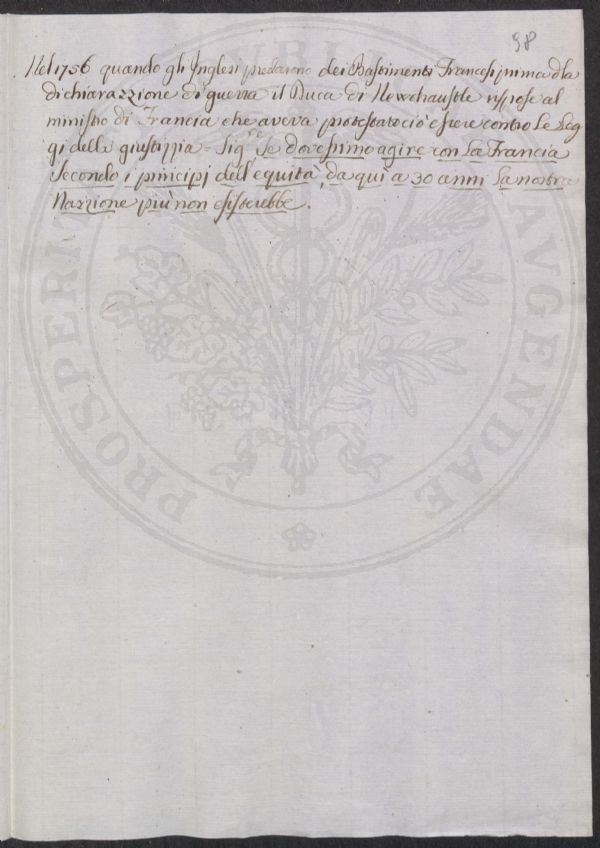 98
Nel 1756 quando gli Inglesi predarono dei Bastimenti Francesi prima dla
dichiarazzione di guerra il Duca di Newchaustle rispose al
ministro di Francia che aveva protestato ciò essere contro le Leg
gi della giustizzia = Sig.re Se dovessimo agire con la Francia
Secondo i principj dell'equità, da quì a 30 anni la nostra
Nazzione più non esisterebbe.
PROSPERITATI PUBLICAE AUGENDAE